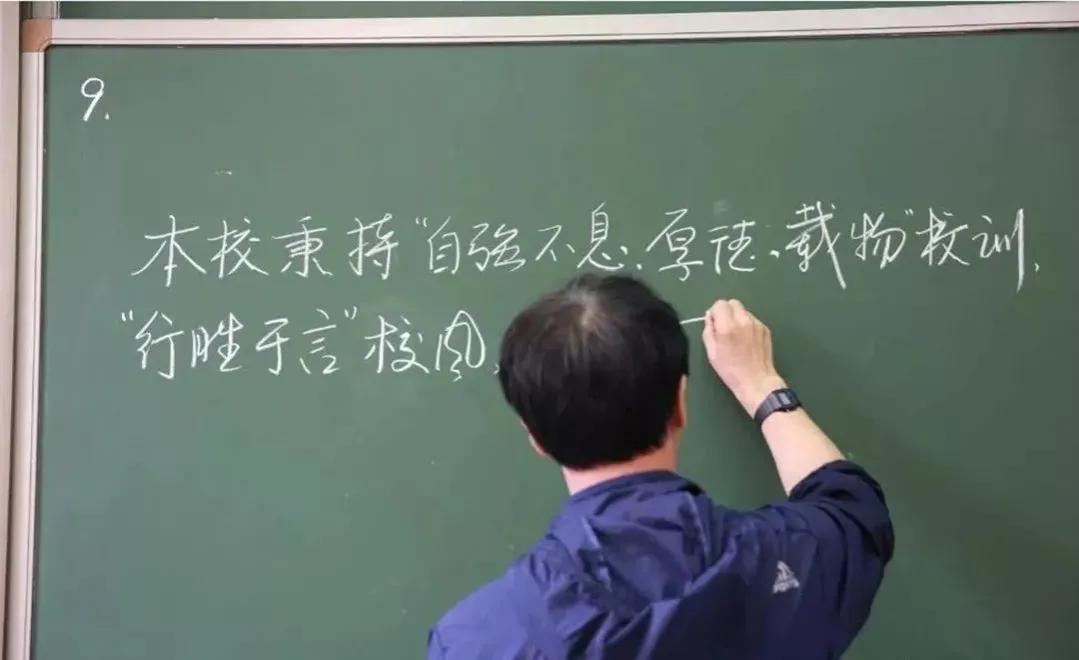 9.
本校秉持“自强不息、厚德、载物”校训,
“行胜于言”校风、